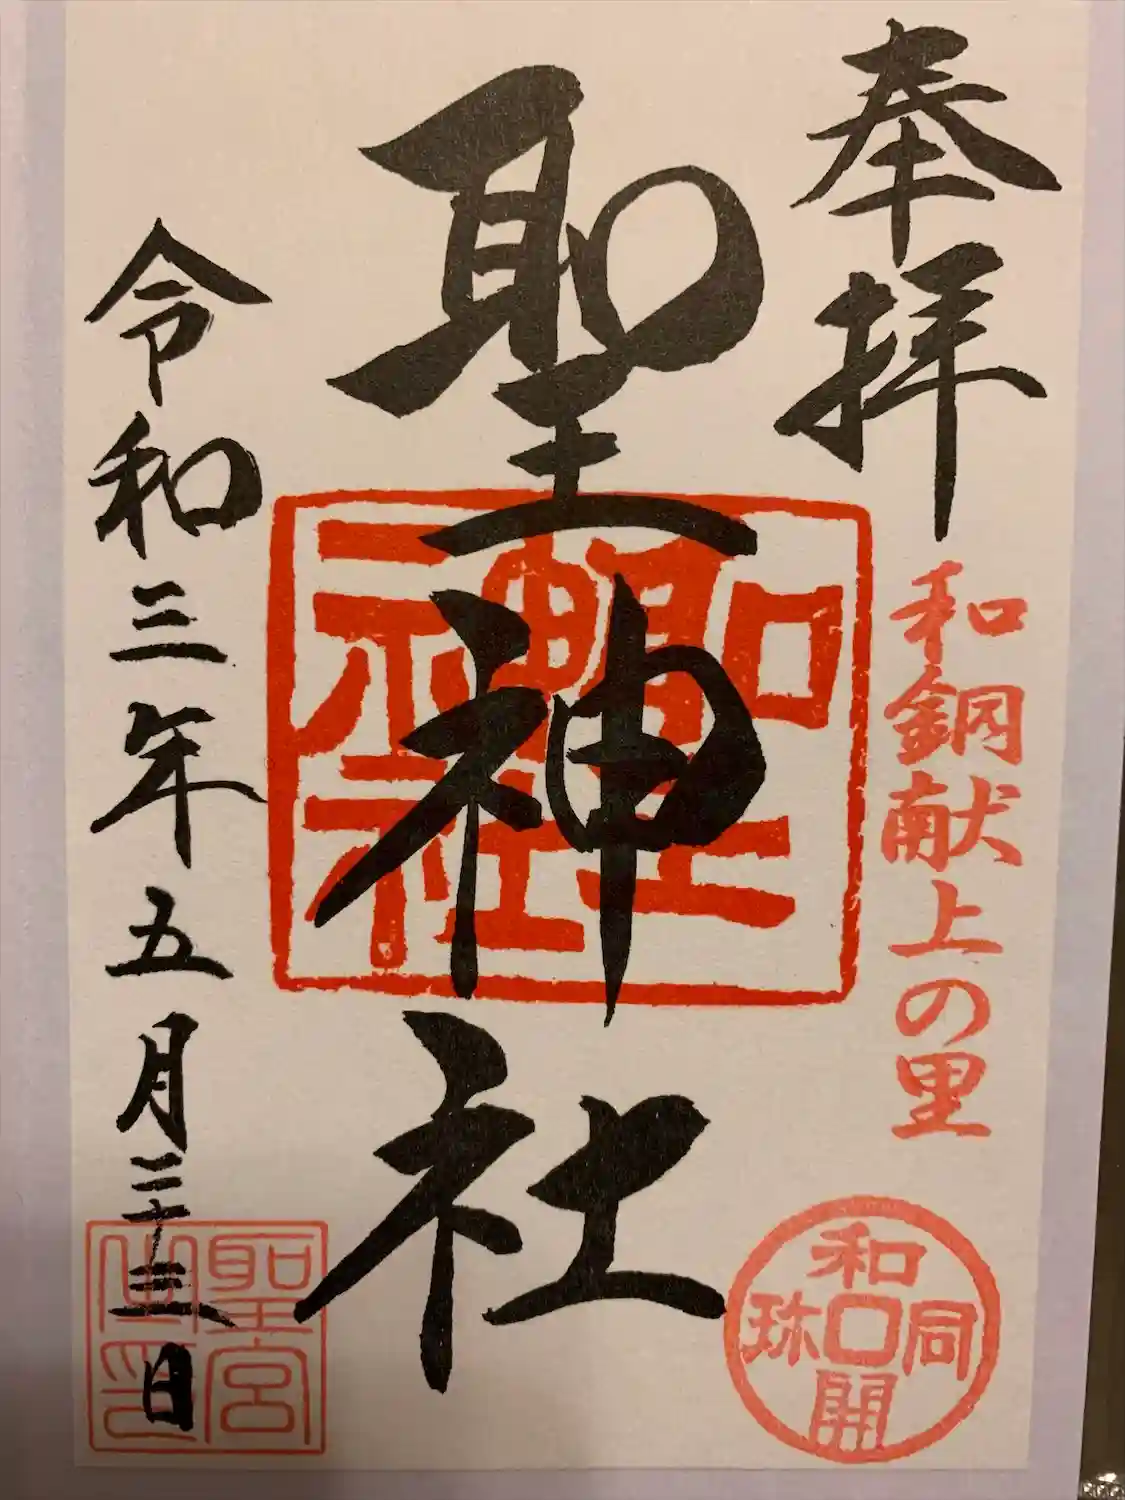 奉拝
和銅献上の里
和同開珎
聖神社
聖神社
令和三年五月二十三日
聖宮